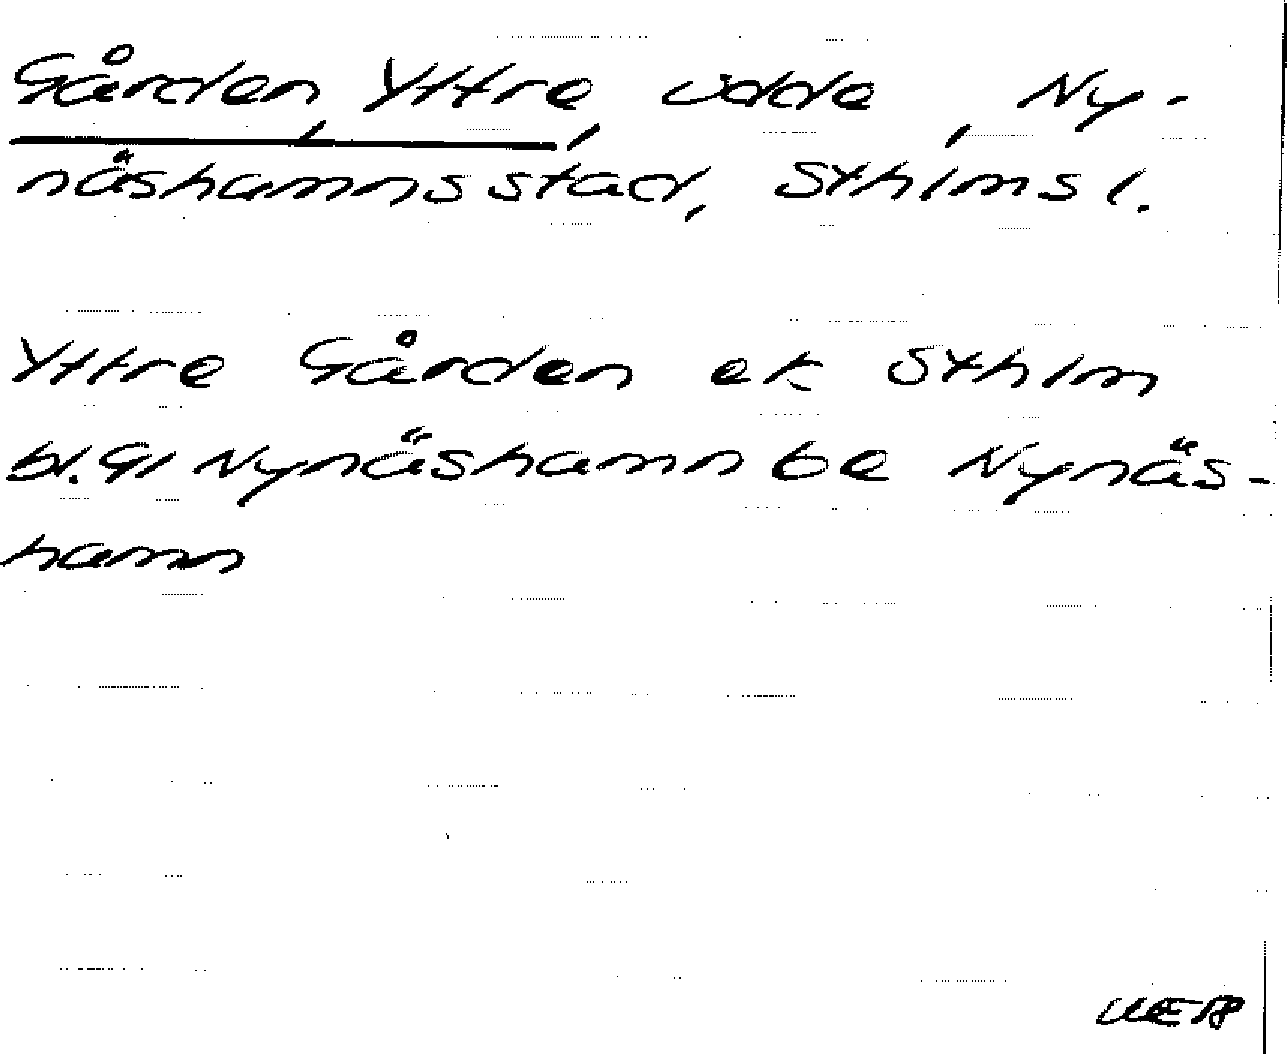 Gården, Yttre, udde, Ny-
näshamns stad, Sthlms l.
Yttre Gården ek Sthlm
bl. 91 Nynäshamn be Nynäs-
hamn